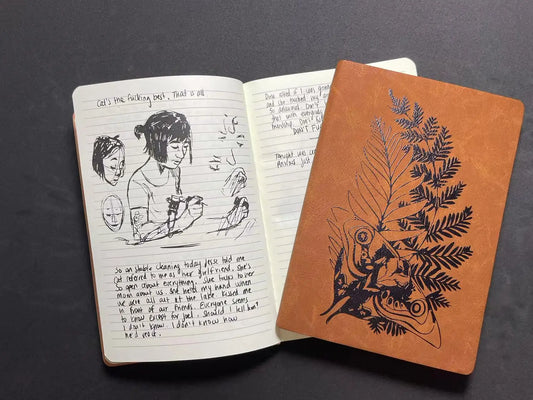 Cat's the fucking best. That is all
So on stable cleaning today Jesse told me
Cat referred to me as her girlfriend. She's
so open about everything. She talks to her
mom about us. She held my hand when
we got all at the lake kissed me
in front of our friends. Everyone seems
to know except for Joel. Should I tell him?
I don't know. I don't know how
he'd react.
Dina asked if I was
and she touched my
So
that with everybody
friendship. Don't
DON'T FU
Tonight was
Just